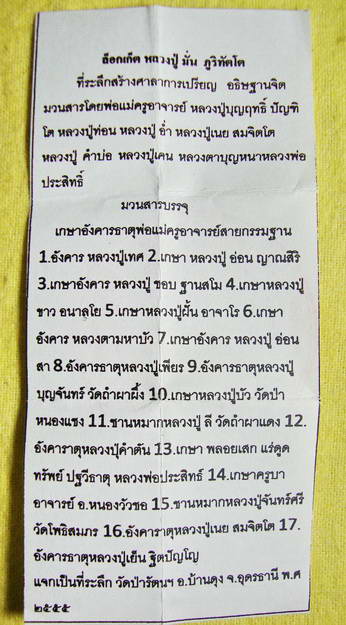 ล็อกเก็ต หลวงปู่ มั่น ภูริทัตโต
ที่ระลึกสร้างศาลาการเปรียญ อธิษฐานจิต
มวนสารโดยพ่อแม่ครูอาจารย์ หลวงปู่บุญฤทธิ์ ปัญฑิ
โต หลวงปู่ท่อน หลวงปู่ อ่ำ หลวงปู่เนย สมจิตโต
หลวงปู่ คำบ่อ หลวงปู่เคน หลวงตาบุญหนาหลวงพ่อ
ประสิทธิ์
มวนสารบรรจุ
เกษาอังคารธาตุพ่อแม่ครูอาจารย์สายกรรมฐาน
1.อังคาร หลวงปู่เทศ 2.เกษา หลวงปู่ อ่อน ญาณสิริ
3.เกษาอังคาร หลวงปู่ ชอบ ฐานสโม 4.เกษาหลวงปู่
ขาว อนาลฺโย 5.เกษาหลวงปู่ฝั้น อาจาโร 6.เกษา
อังคาร หลวงตามหาบัว 7.เกษาอังคาร หลวงปู่ อ่อน
สา 8.อังคารธาตุหลวงปู่เพียร 9.อังคารธาตุหลวงปู่
บุญจันทร์ วัดถ้ำผาผึ้ง 10.เกษาหลวงปู่บัว วัดป่า
หนองแซง 11.ชานหมากหลวงปู่ ลี วัดถ้ำผาแดง 12.
อังคาราตุหลวงปุ่คำตัน 13.เกษา พลอยเสก แร่ดูด
ทรัพย์ ปฐวีธาตุ หลวงพ่อประสิทธ์ 14.เกษาครูบา
อาจารย์ อ.หนองวัวซอ 15.ชานหมากหลวงปู่จันทร์ศรี
วัดโพธิสมภร 16.อังคาราตุหลวงปู่เนย สมจิตโต 17.
อังคารธาตุหลวงปู่เย็น ฐิตปัญโญ
แจกเป็นที่ระลึก วัดป่ารัตนฯ อ.บ้านดุง จ.อุดรธานี พ.ศ
๒๕๕๕